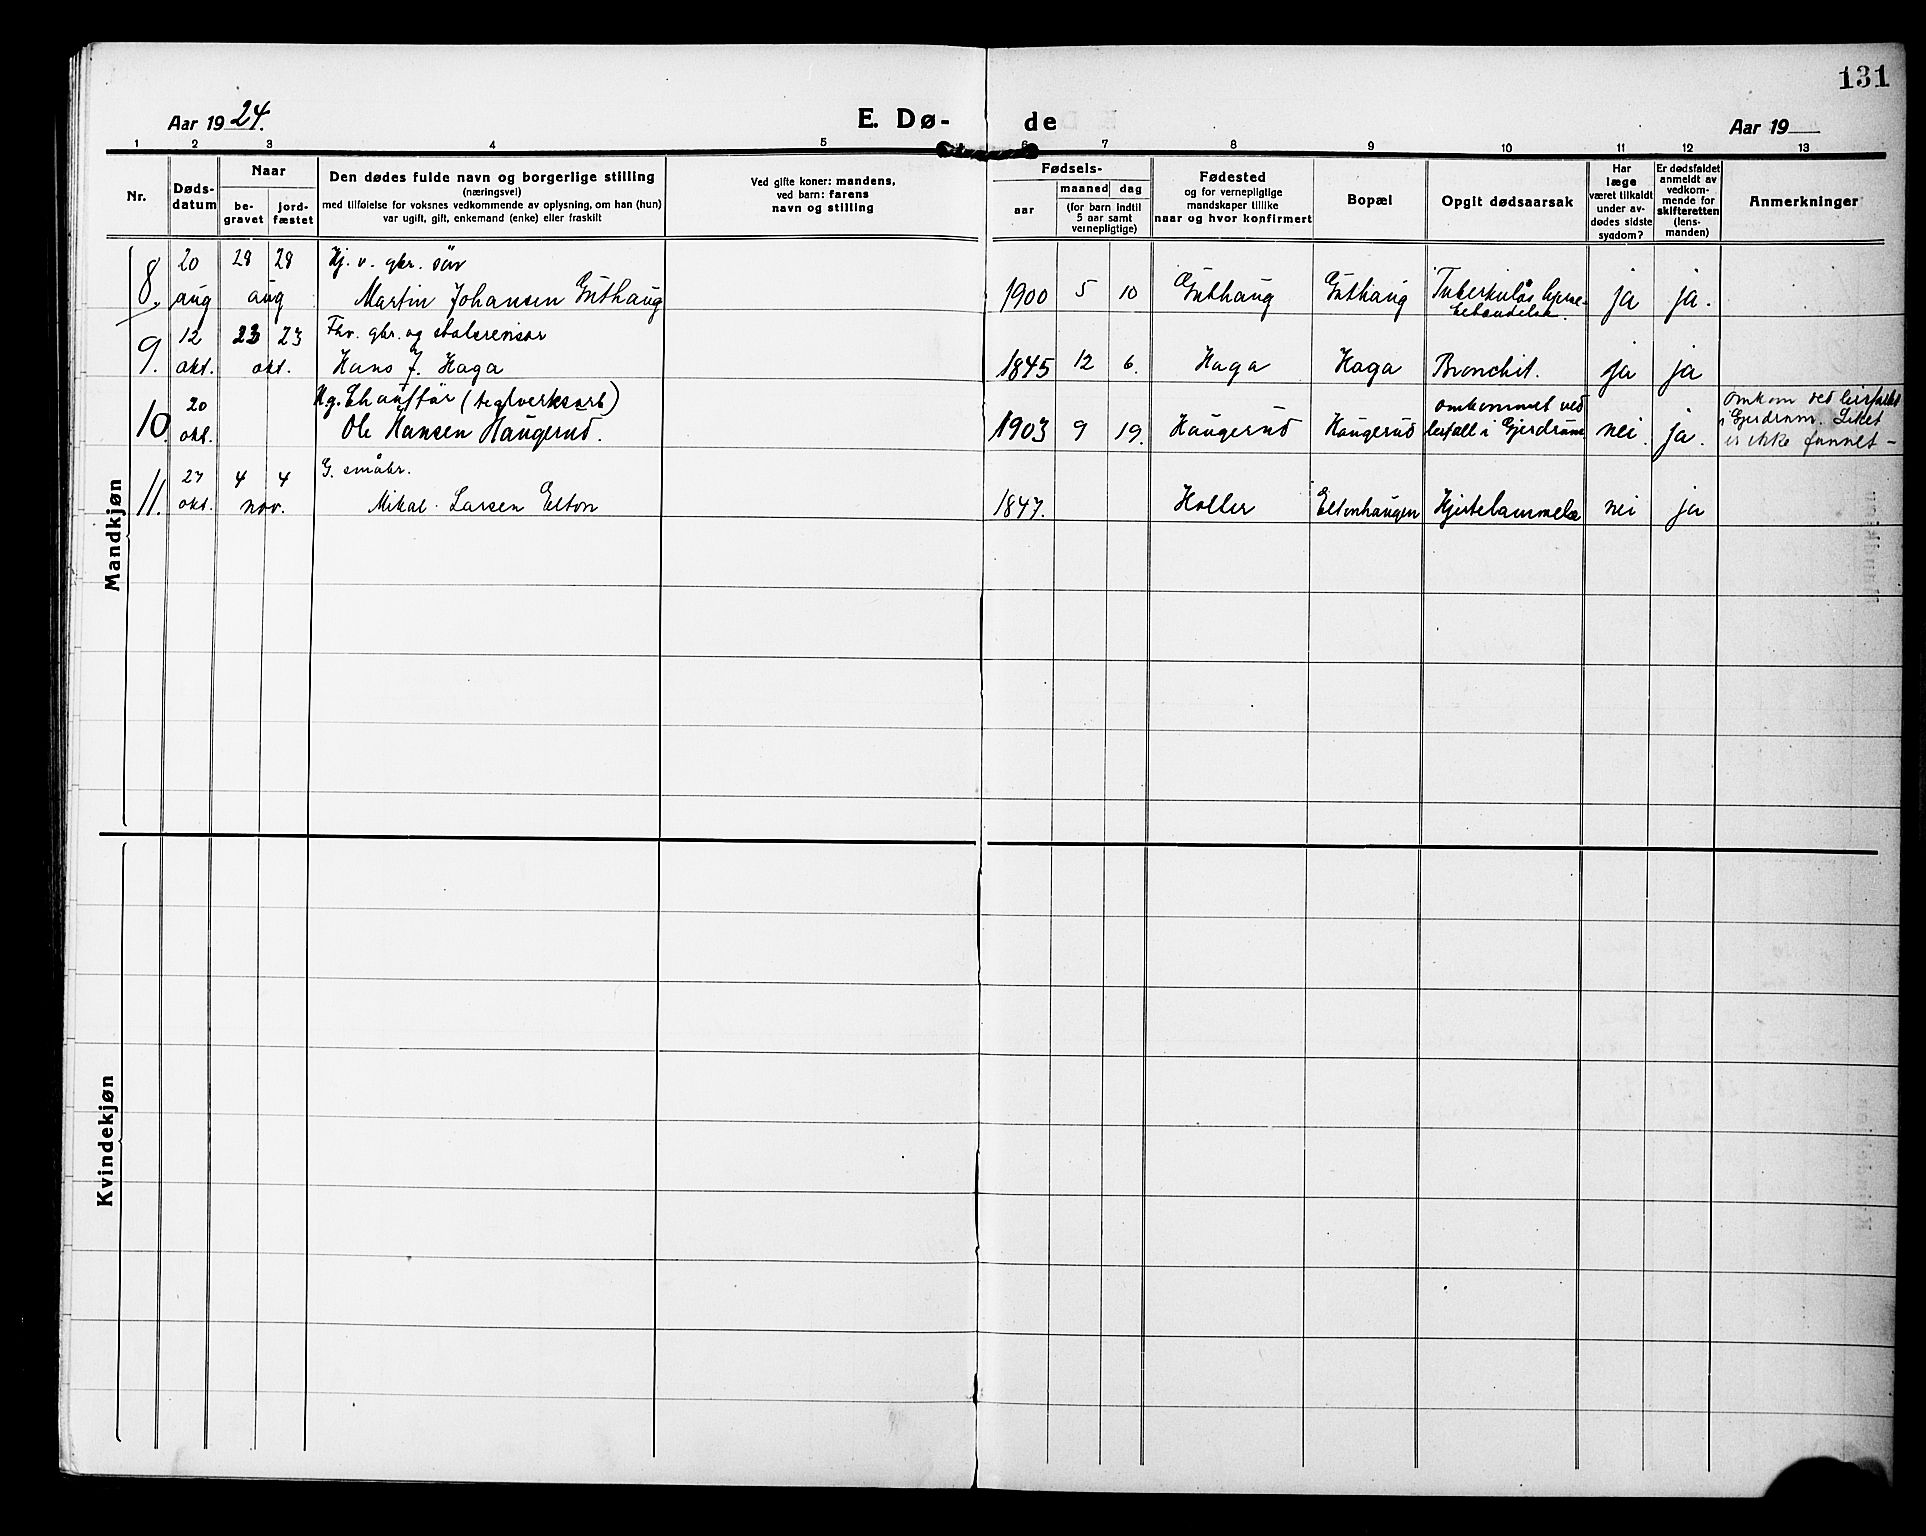 131
Aar 1924.
E. Dø-
de
Aar 19
1 2 3 4 5 6 7 8 9 10 11 12 13
Nr.
Døds-
datum
Naar
be-
gravet
jord-
fæstet
Den dødes fulde navn og borgerlige stilling
(næringsvei)
med tilføielse for voksnes vedkommende av oplysning, om han (hun)
var ugift, gift, enkemand (enke) eller fraskilt
Ved gifte koner: mandens,
ved barn: farens
navn og stilling
Fødsels-
aar
maaned dag
(for barn indtil
5 aar samt
vernepligtige)
Fødested
og for vernepligtige
mandskaper tillike
naar og hvor konfirmert
Bopæl
Opgit dødsaarsak
Har
læge
været tilkaldt
under av-
dødes sidste
sygdom?
Er dødsfaldet
anmeldt av
vedkom-
mende for
skifteretten
(lens-
manden)
Anmerkninger
Mandkjøn
8. 20 aug 28 28 aug Hj. v. gbr. søn
Martin Johansen Guthaug 1900 5 10 Guthaug Guthaug Tuberkuløs ja ja.
9. 12 okt. 23 23 okt. Fhv. gbr. og
Hans J. Haga 1845 12 6. Haga Haga Bronchit. ja ja
10. 20 okt. Ug. Chauffør (teglverksarb)
Ole Hansen Haugerud. 1903 9 19. Haugerud Haugerud omkommet ved
leirfall i Gjerdrum nei. ja. omkom ved leirfaldet
i Gjerdrum. Liket
er ikke funnet -
11. 27 okt. 4 4 nov. G. småbr.
Mikal Larsen Elton 1847. Holler Eltonhaugen Hjertelammelse nei ja
Kvindekjøn